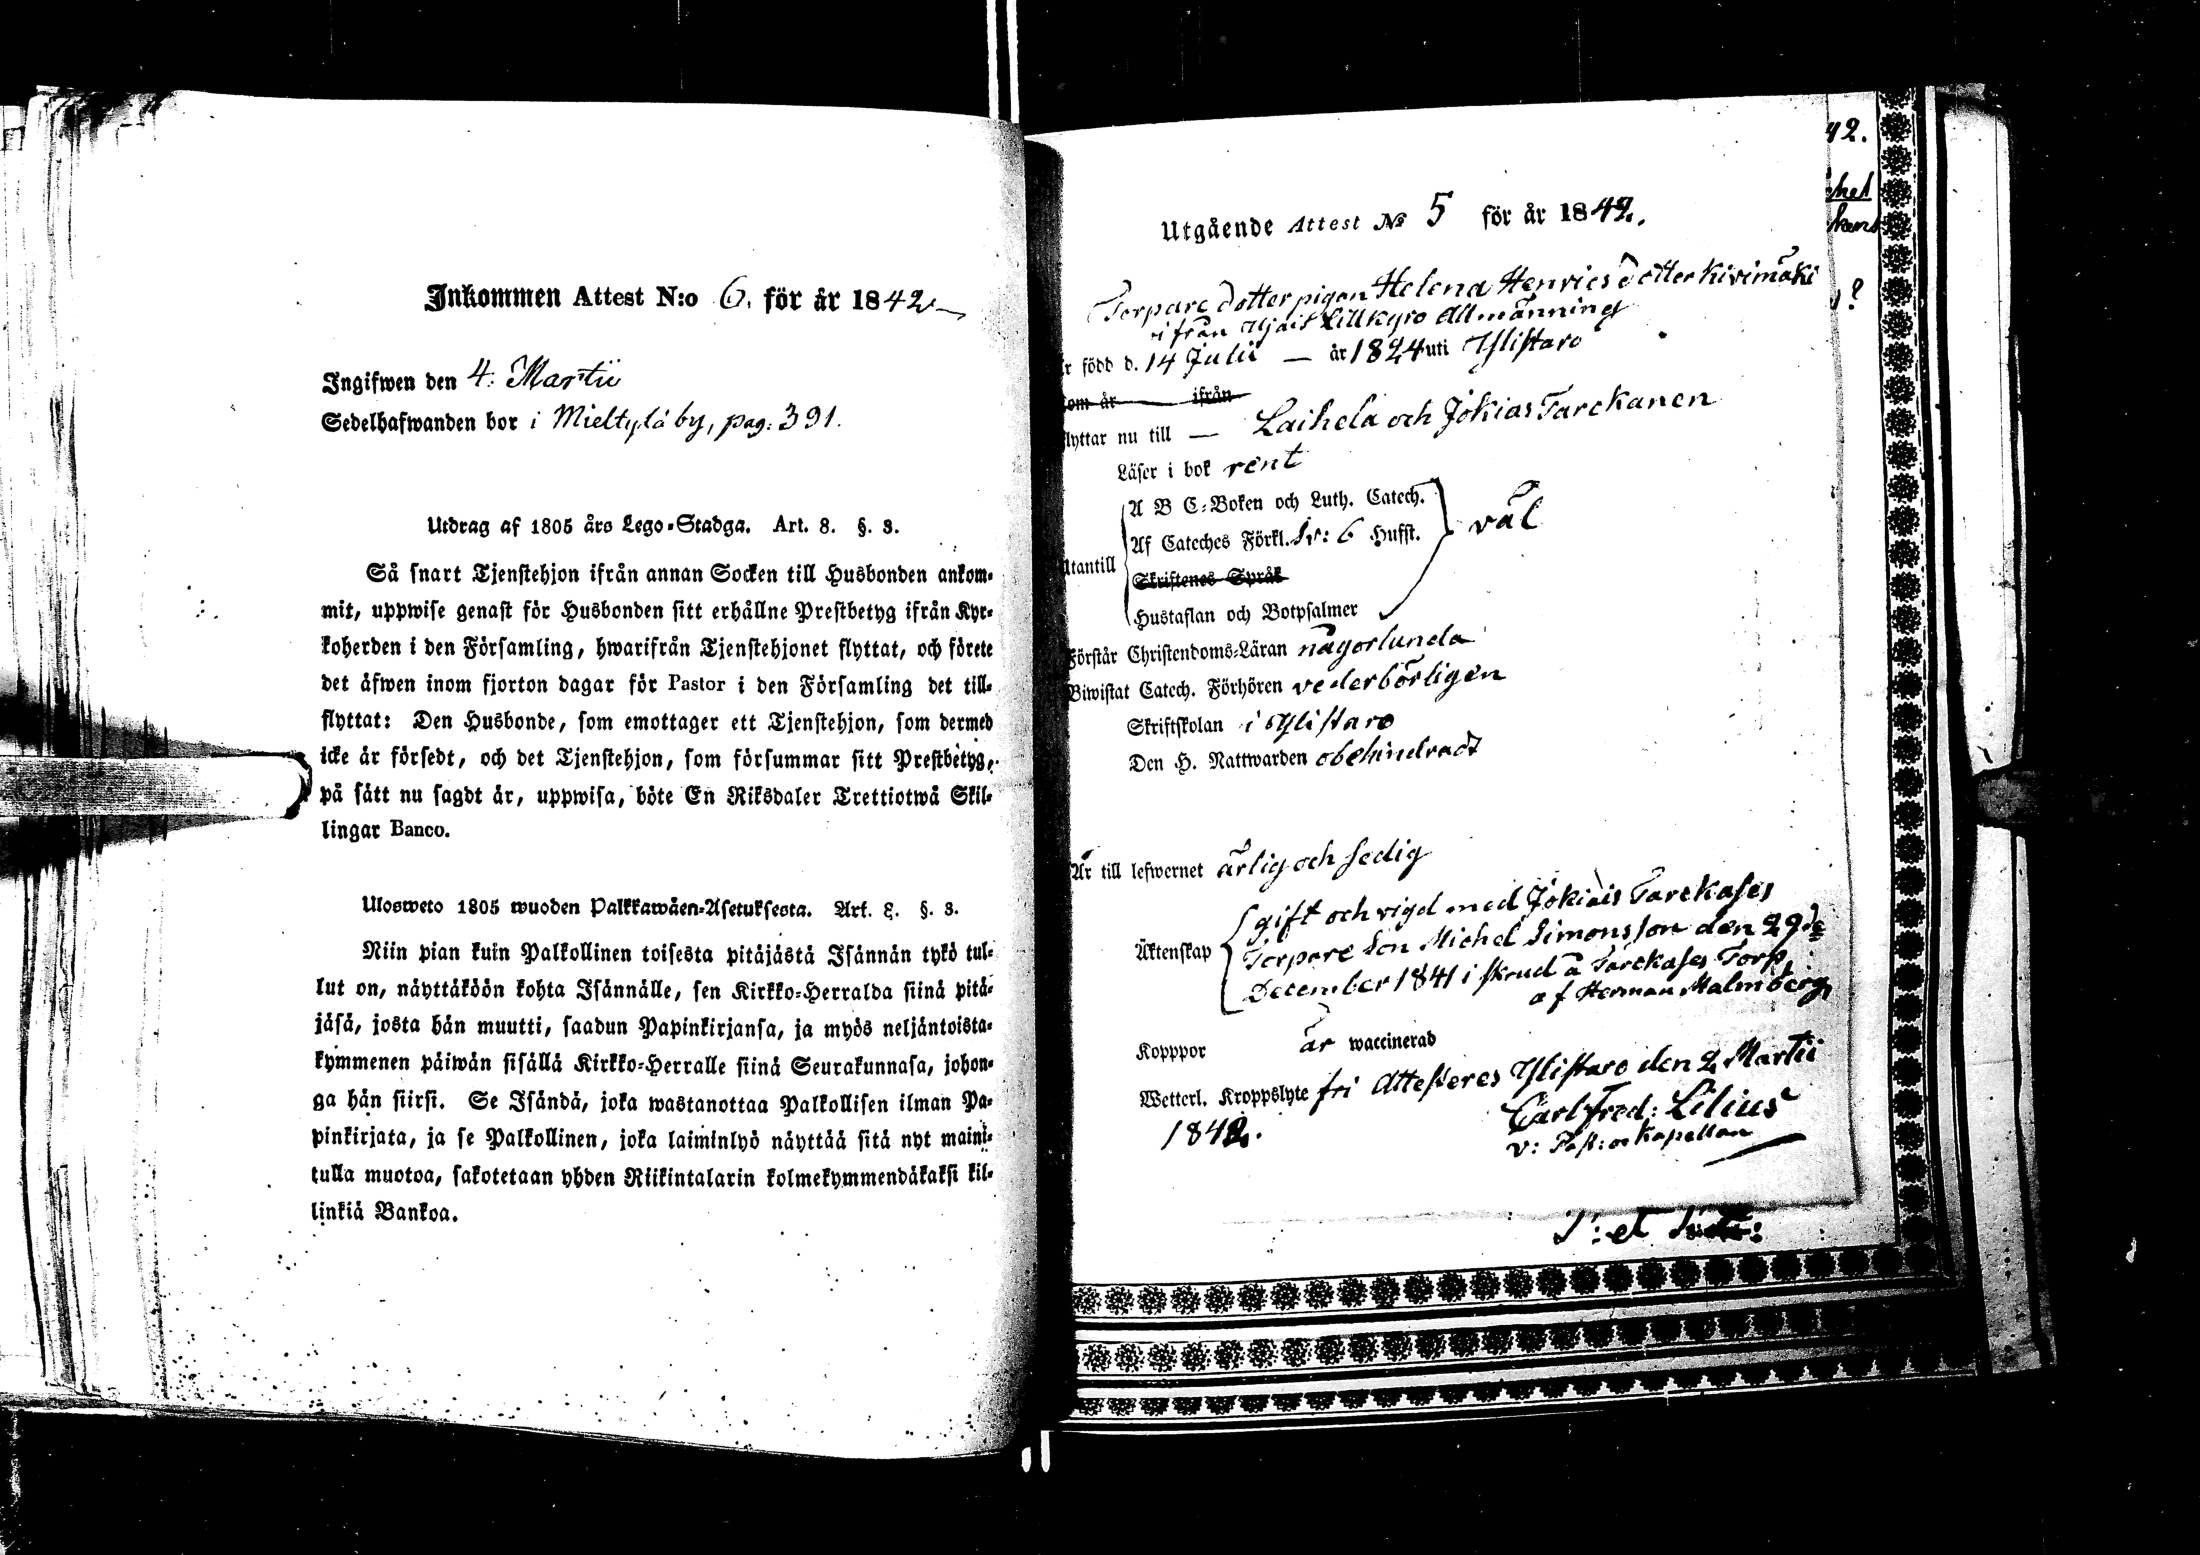 Inkommen Attest N:o 6. för år 1842
Ingifwen den 4. Martii
Sedelhafwanden bor i Mieltylä by, pag: 391.
Utdrag af 1805 års Lego-Stadga. Art. 8. §. 3.
Så snart Tjenstehjon ifrån annan Socken till Husbonden ankom-
mit, uppwise genast för Husbonden sitt erhållne Prestbetyg ifrån Kyr-
koherden i den Församling, hwarifrån Tjenstehjonet flyttat, och förete
det äfwen inom fjorton dagar för Pastor i den Församling det till-
flyttat: Den Husbonde, som emottager ett Tjenstehjon, som dermed
icke är försedt, och det Tjenstehjon, som försummar sitt Prestbetyg,
på sätt nu sagdt är, uppwisa, böte En Riksdaler Trettiotwå Skil-
lingar Banco.
Ulosweto 1805 wuoden Palkkawäen-Asetuksesta. Art. 8. §. 3.
Niin pian kuin Palkollinen toisesta pitäjästä Isännän tykö tul-
lut on, näyttäköön kohta Isännälle, sen Kirkko-Herralda siinä pitä-
jäsä, josta hän muutti, saadun Papinkirjansa, ja myös neljäntoista-
kymmenen päiwän sisällä Kirkko-Herralle siinä Seurakunnasa, johon-
ga hän siirsi. Se Isändä, joka wastanottaa Palkollisen ilman Pa-
pinkirjata, ja se Palkollinen, joka laiminlyö näyttää sitä nyt maini-
tulla muotoa, sakotetaan yhden Riikintalarin kolmekymmendäkaksi kil-
linkiä Bankoa.
Utgående Attest No 5 för år 1842.
Torpare dotter pigan Helena Henricsdotter Kivimäki
ifrån Lillkyro Allmänning
r född d. 14 Julii — år 1824 uti Ylistaro
om år ifrån
lyttar nu till — Laihela och Jokias Tarckanen
Läser i bok rent
A B C-Boken och Luth. Catech.
Af Cateches Förkl. Sv: 6 Hufst. väl
Utantill
Skriftenes Språk
Hustaflan och Botpsalmer
Förstår Christendoms-Läran någorlunda
Biwistat Catech. Förhören vederbörligen
Skriftskolan i Ylistaro
Den H. Nattwarden obehindradt
Är till lefwernet ärlig och sedig
gift och vigd med Jokiais Tarckases
Äktenskap Torpare Son Michel Simonsson den 29de
December 1841 i skrud å Tarckases Torp
af Herman Malmberg
Kopppor är waccinerad
Wetterl. Kroppslyte fri Attesteres Ylistaro den 2 Martii
1842.
Carl Fred: Lilius
v: Past: o Kapellan
42.
?